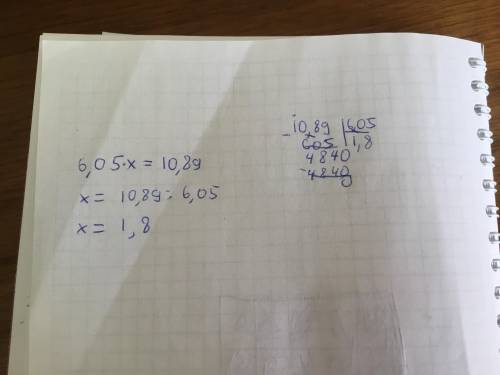 6,05·x = 10,89
x = 10,89 : 6,05
x = 1,8
10,89 | 6,05
- 605 | 1,8
4840
- 4840
0